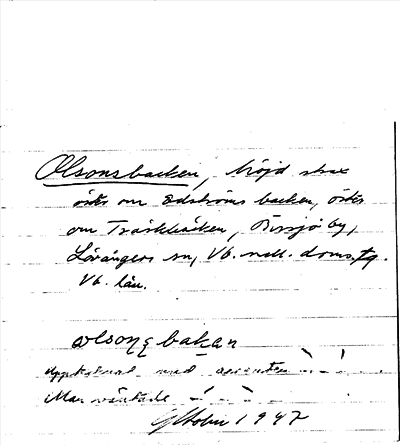 Olsonsbacken, höjd strax
öster om Edströms backen, öster
om Träskbäcken, Bissjö by,
Lövångers sn, Vb. nedl. doms.tg.
Vb. län.
olsonsbakan
Uppteknat med accenten
Man väntade
Holm 1947